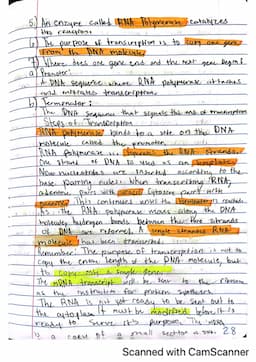 5) An enzyme called RNA Polymerase catalyzes
this reaction.
6) The purpose of transcription is to copy one gene
from the DNA molecule.
7) Where does one gene end and the next gene begin?
a) Promoter:
A DNA sequence where RNA polymerase attaches
and initiates transcription.
b) Terminator:
The DNA sequence that signals the end of transcription
Steps of Transcription
RNA polymerase binds to a site on the DNA
molecule called the promoter.
RNA polymerase separates the DNA strands.
One strand of DNA is used as an template
New nucleotides are inserted according to the
base pairing rules. When transcribing RNA,
adenine pairs with uracil cytosine pairs with
guanine. This continues until the terminator is reached.
As the RNA polymerase moves along the DNA
molecule, hydrogen bonds between the two strands
of DNA are reformed. A single stranded RNA
molecule has been transcribed.
Remember: The purpose of transcription is not to
copy the entire length of the DNA molecule, but
to copy only a single gene.
The mRNA transcript will be taken to the ribosome
as the instruction for protein synthesis.
The RNA is not yet ready to be sent out to
the cytoplasm. It must be modified before it is
ready to serve its purpose.
is a copy of a small section of DNA. 28
Scanned with CamScanner